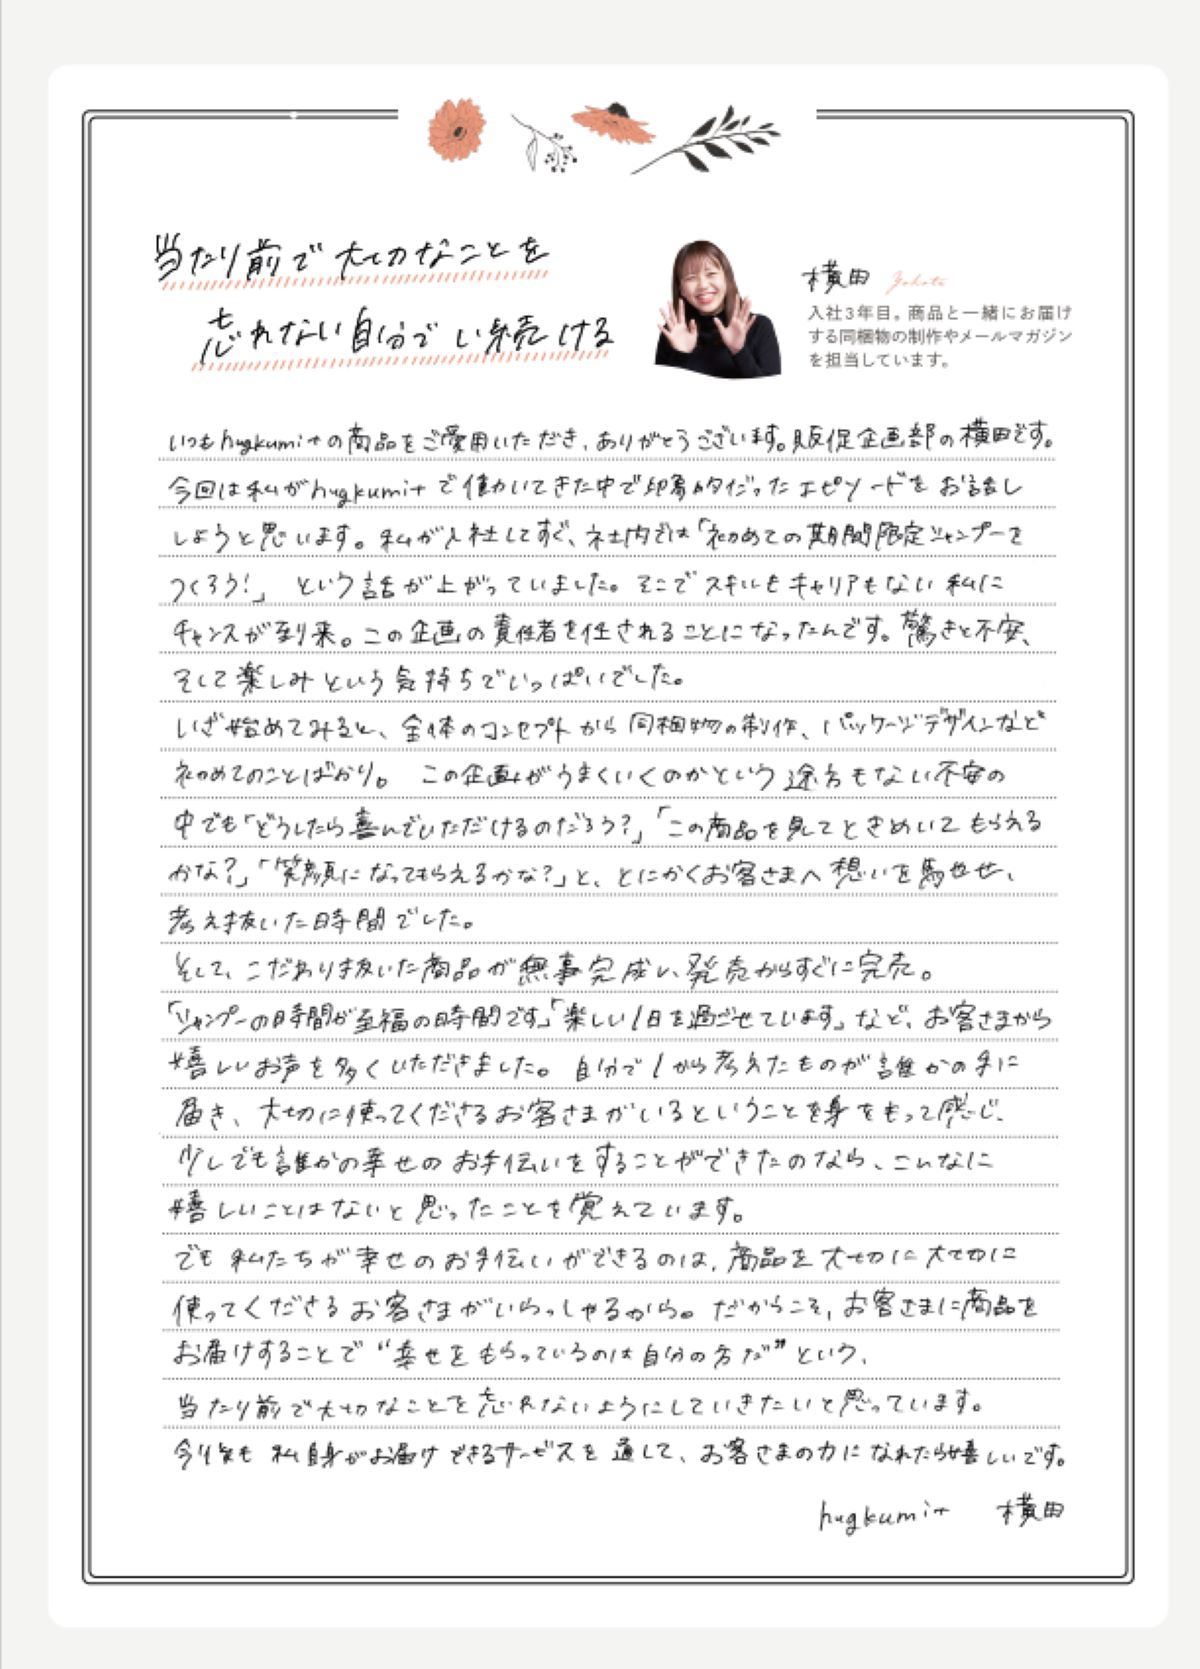 当たり前で大切なことを
忘れない自分でい続ける
横田 Yokota
入社3年目。商品と一緒にお届け
する同梱物の制作やメールマガジン
を担当しています。
いつもhugkumi+の商品をご愛用いただき、ありがとうございます。販促企画部の横田です。
今回は私がhugkumi+で働いてきた中で印象的だったエピソードをお話し
しようと思います。私が入社してすぐ、社内では「初めての期間限定シャンプーを
つくろう!」 という話が上がっていました。そこでスキルもキャリアもない私に
チャンスが到来。この企画の責任者を任されることになったんです。驚きと不安、
そして楽しみという気持ちでいっぱいでした。
いざ始めてみると、全体のコンセプトから同梱物の制作、パッケージデザインなど
初めてのことばかり。 この企画がうまくいくのかという途方もない不安の
中でも「どうしたら喜んでいただけるのだろう?」「この商品を見てときめいてもらえる
かな?」「笑顔になってもらえるかな?」と、とにかくお客さまへ想いを馳せ、
考え抜いた時間でした。
そして、こだわり抜いた商品が無事完成し、発売からすぐに完売。
「シャンプーの時間が至福の時間です」「楽しい1日を過ごせています」など、お客さまから
嬉しいお声を多くいただきました。自分で1から考えたものが誰かの手に
届き、大切に使ってくださるお客さまがいるということを身をもって感じ、
少しでも誰かの幸せのお手伝いをすることができたのなら、こんなに
嬉しいことはないと思ったことを覚えています。
でも私たちが幸せのお手伝いができるのは、商品を大切に大切に
使ってくださるお客さまがいらっしゃるから。だからこそ、お客さまに商品を
お届けすることで“幸せをもらっているのは自分の方だ”という、
当たり前で大切なことを忘れないようにしていきたいと思っています。
今年も私自身がお届けできるサービスを通して、お客さまの力になれたら嬉しいです。
hugkumi+ 横田